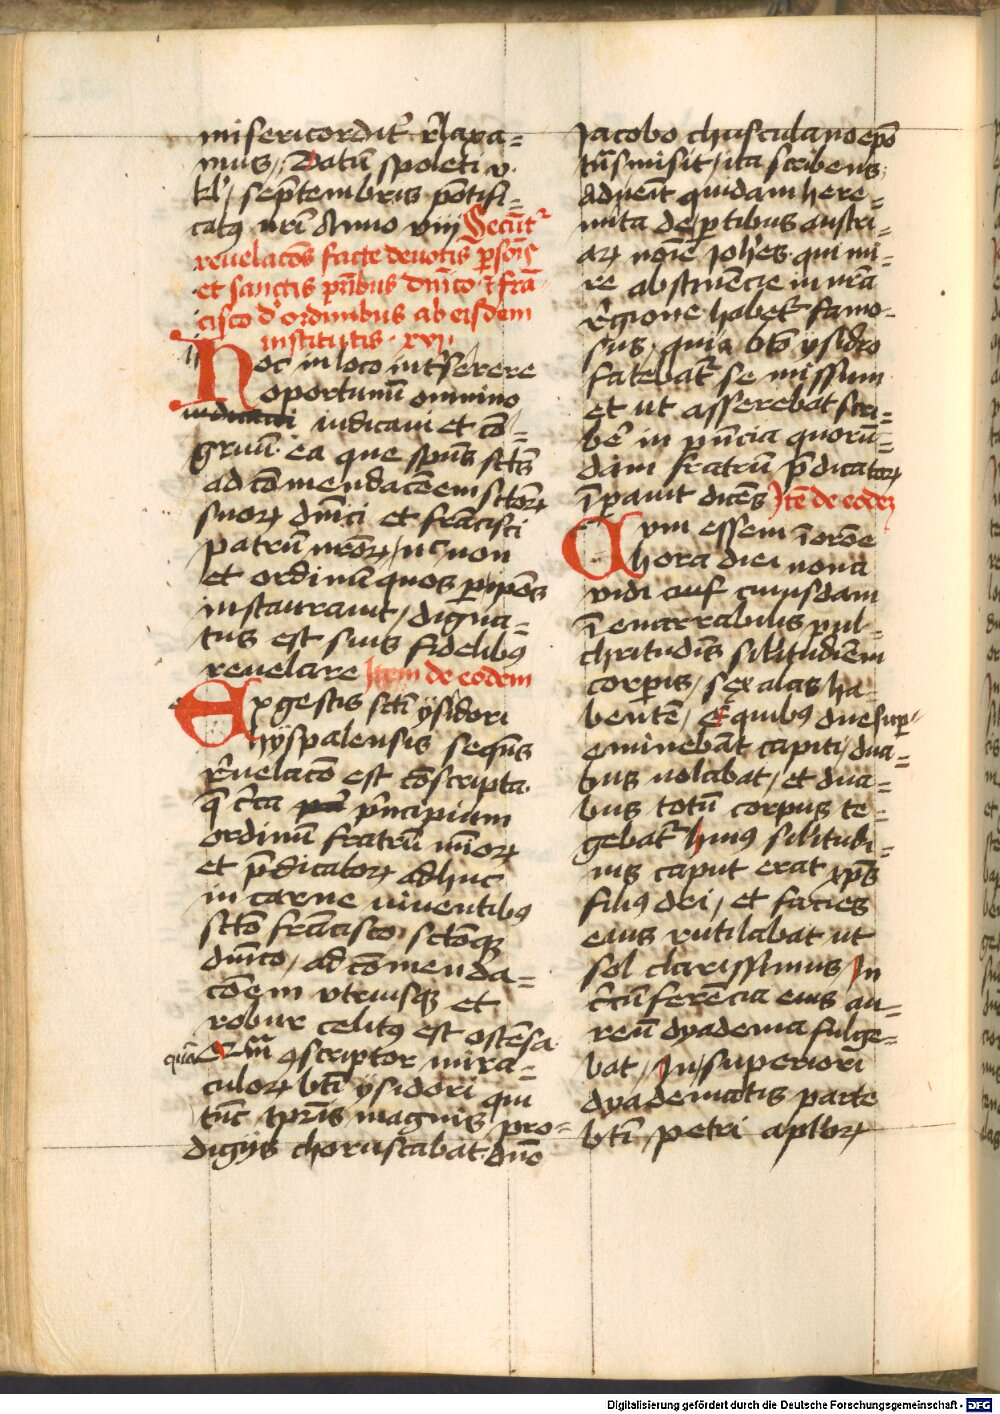 misericordit᷑ r̄laxa=
mus, Datū spoleti v.
kl᷑ septembris pōtifi=
catꝯ nr̄i Anno viij Secūt᷑
reuelacōs facte deuotis ꝑsōis
et sanctis pr̄ibus dn̄ico ⁊ frā
cisco d᷑ ordinibus ab eisdem
institutis · xvj ·
Hoc in loco int᷑serere
oportunū omnino
iudicaui et cō=
gruū ea que spūs sctūs
ad cōmendacōem sctōrꝝ
suorꝝ dn̄ici et francisci
patrū nr̄orꝝ / nc̄ non
et ordinū quos ꝑ ip̄os
instaurauit / digna=
tus est suis fidelibꝯ
reuelare Item de eodem
Ex gestis sctī ysidori
hyspalensis seqūs
r̄uelacō est cōscripta
q̄ c̄ca p̄ncipium
ordinū fratrū mīorꝝ
et p̄dicatorꝝ adhuc
in carne viuentibꝯ
sctō francisco sctōqꝫ
dn̄ico, ad cōmenda=
cōem vtriusqꝫ et
robur celitꝯ est ostēsa
Quā ꝯscriptor mira=
culorꝝ bt̄i ysidori qui
tūc tp̄ris magnis pro=
digijs choruscabat dn̄o
Jacobo chusculano ep̄o
trāsmisit / ita scribens
aduēit quidam here=
mita de ꝑtibus austri=
arꝝ noīe Joh̄es qui mi=
re abstinēcie in nr̄a
r̄gione habet᷑ famo=
sus, quia bt̄o ysidro
fatebat᷑ se missum
et ut asserebat scri=
be᷑ in p̄ncia quorū=
dam fratrū p̄dicatorꝝ
īꝑauit dicēs Itē de eodeꝫ
Cum essem ī orōe
hora diei nona
vidi cuiusdam
īenarrabilis pul=
chritudīs silitudīem
corꝑis, sex alas ha=
bentē, e quibꝯ due suꝑ
eminebāt capiti, dua=
bus uolabat, et dua=
bus totū corpus te=
gebat᷑ huiꝯ silitudi=
nis caput erat xp̄s
filiꝯ dei, et facies
eius rutilabat ut
sol clarissimus In
c̄cūferēcia eius au=
reū dyadema fulge=
bat, In superiori
dyadematis parte
bt̄i petri apl̄orꝝ